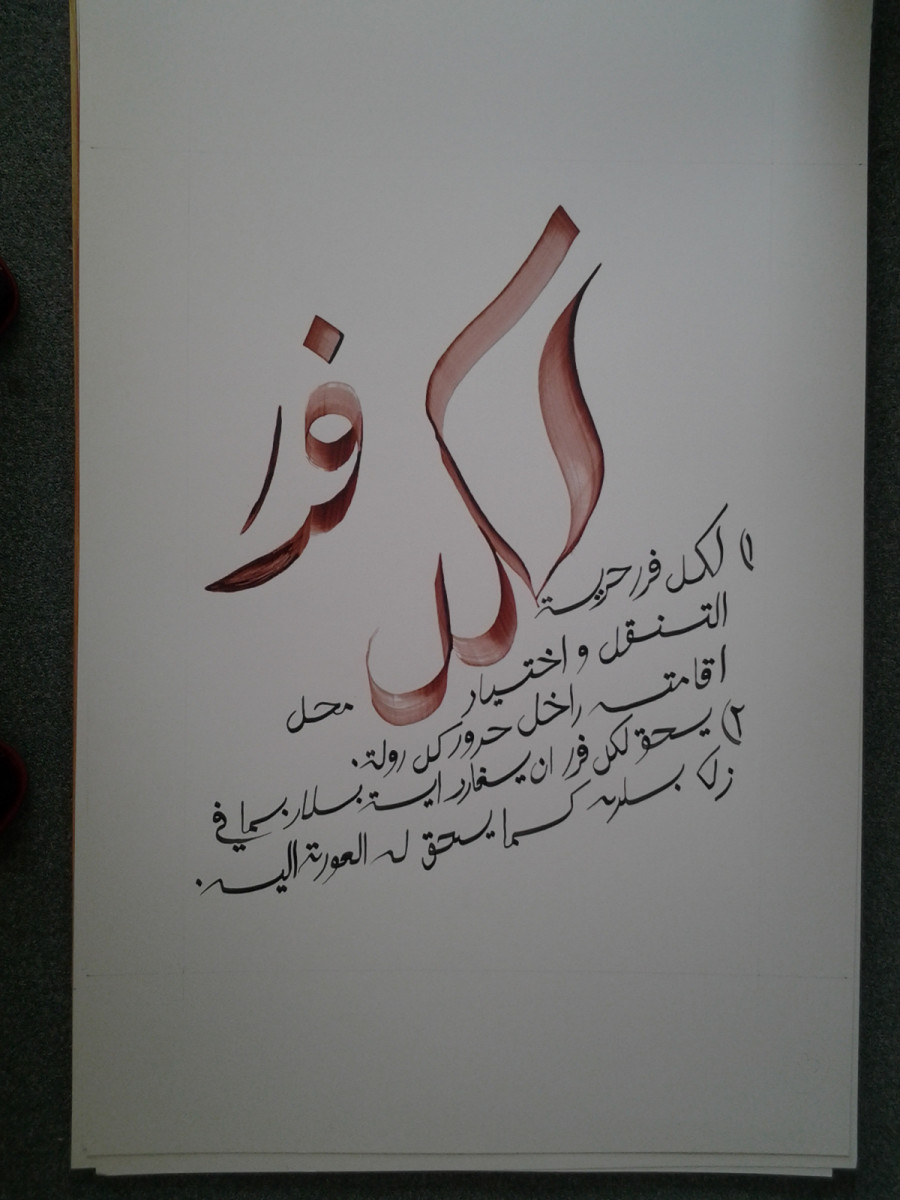 لكل فرد
١) لكل فرد حرية
التنقل و اختيار محل
اقامته داخل حدود كل دولة.
٢) يحق لكل فرد ان يغادر اية بلاد بما في
ذلك بلده كما يحق له العودة اليه.